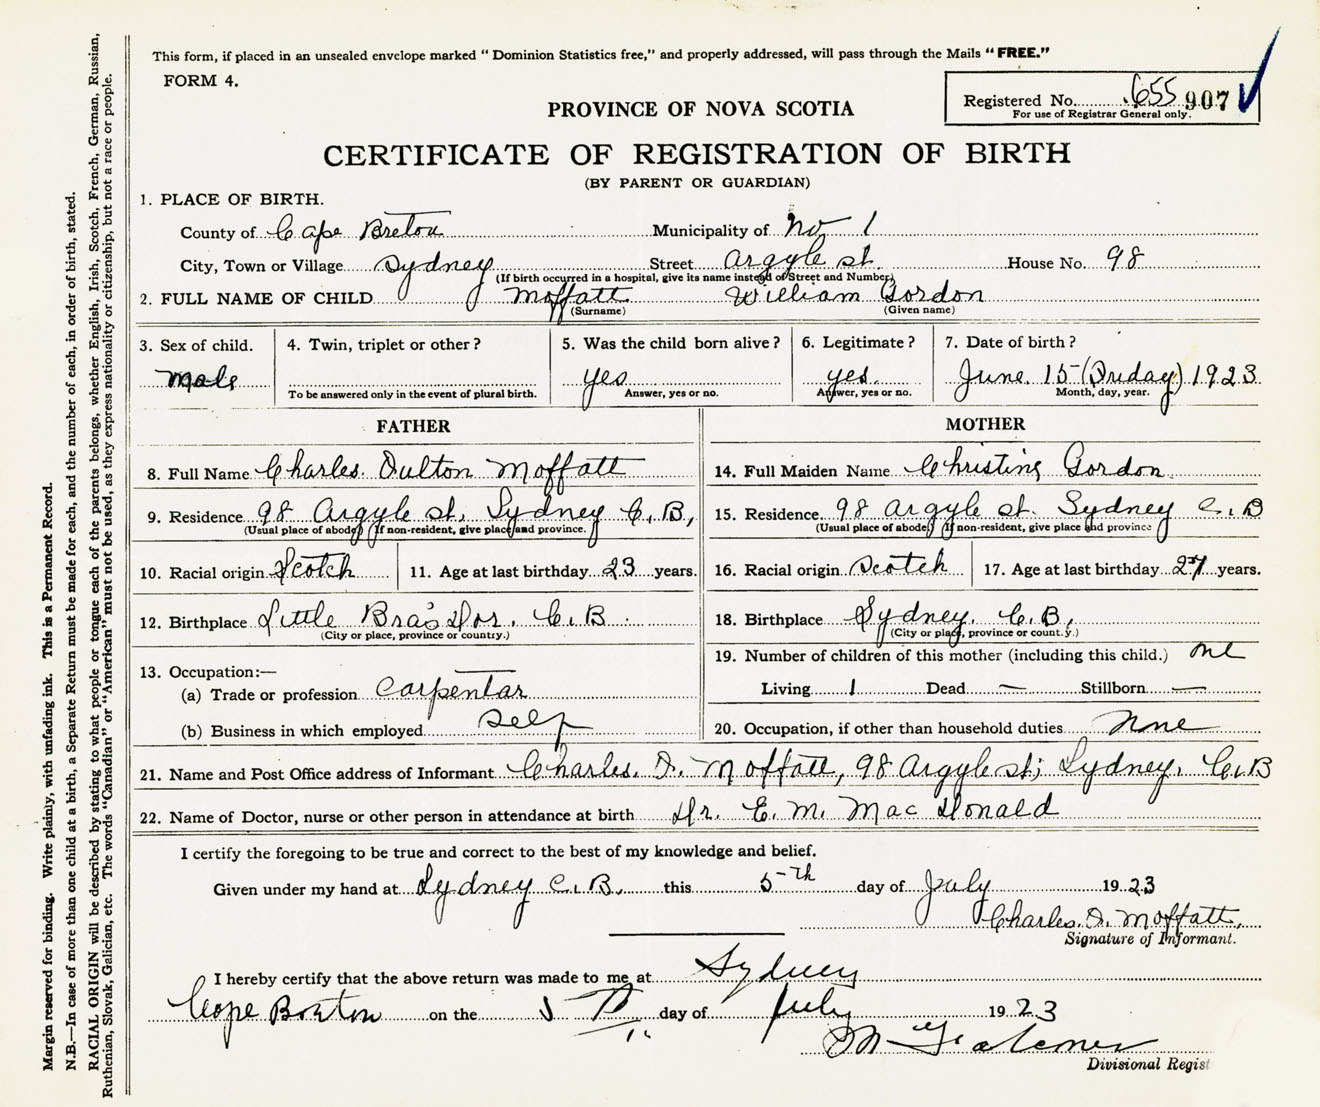 This form, if placed in an unsealed envelope marked “Dominion Statistics free,” and properly addressed, will pass through the Mails “FREE.”
FORM 4.
Registered No. 655 907
For use of Registrar General only.
PROVINCE OF NOVA SCOTIA
CERTIFICATE OF REGISTRATION OF BIRTH
(BY PARENT OR GUARDIAN)
1. PLACE OF BIRTH.
County of Cape Breton Municipality of No 1
City, Town or Village Sydney Street Argyle st. House No. 98
(If birth occurred in a hospital, give its name instead of Street and Number)
2. FULL NAME OF CHILD Moffatt William Gordon
(Surname) (Given name)
3. Sex of child. 4. Twin, triplet or other? 5. Was the child born alive? 6. Legitimate? 7. Date of birth?
Male yes yes. June 15 (Friday) 1923
To be answered only in the event of plural birth. Answer, yes or no. Answer, yes or no. Month, day, year.
FATHER
8. Full Name Charles Dulton Moffatt
9. Residence 98 Argyle st, Sydney C.B,
(Usual place of abode) (If non-resident, give place and province.
10. Racial origin Scotch 11. Age at last birthday 23 years.
12. Birthplace Little Bras Dor. C.B
(City or place, province or country.)
13. Occupation:—
(a) Trade or profession Carpentar
(b) Business in which employed Self
MOTHER
14. Full Maiden Name Christing Gordon
15. Residence 98 Argyle st. Sydney C.B
(Usual place of abode) (If non-resident, give place and province
16. Racial origin Scotch 17. Age at last birthday 27 years.
18. Birthplace Sydney. C.B,
(City or place, province or count.y.)
19. Number of children of this mother (including this child.) one
Living 1 Dead — Stillborn —
20. Occupation, if other than household duties None
21. Name and Post Office address of Informant Charles. D. Moffatt, 98 Argyle st; Sydney. C.B
22. Name of Doctor, nurse or other person in attendance at birth Dr. E. M. Mac Donald
I certify the foregoing to be true and correct to the best of my knowledge and belief.
Given under my hand at Sydney C.B. this 5th day of July 1923
Charles. D. Moffatt,
Signature of Informant.
I hereby certify that the above return was made to me at Sydney
Cape Breton on the 5th day of July 1923
Divisional Regist
Margin reserved for binding. Write plainly, with unfading ink. This is a Permanent Record.
N.B.—In case of more than one child at a birth, a Separate Return must be made for each, and the number of each, in order of birth, stated.
RACIAL ORIGIN will be described by stating to what people or tongue each of the parents belongs, whether English, Irish, Scotch, French, German, Russian,
Ruthenian, Slovak, Galician, etc. The words “Canadian” or “American” must not be used, as they express nationality or citizenship, but not a race or people.